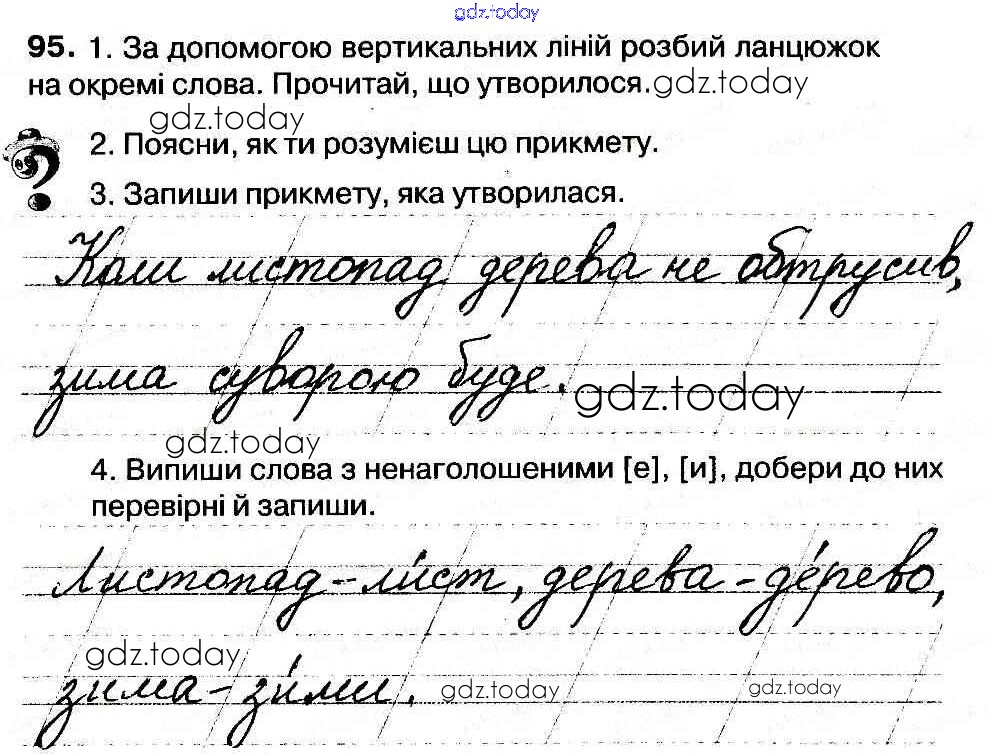 gdz.today
95. 1. За допомогою вертикальних ліній розбий ланцюжок
на окремі слова. Прочитай, що утворилося. gdz.today
gdz.today
2. Поясни, як ти розумієш цю прикмету.
3. Запиши прикмету, яка утворилася.
Коли листопад дерева не обтрусив,
зима суворою буде. gdz.today
gdz.today
4. Випиши слова з ненаголошеними [е], [и], добери до них
перевірні й запиши.
Листопад – ли́ст, дерева – де́рево,
gdz.today
зима – зи́ми. gdz.today gdz.today